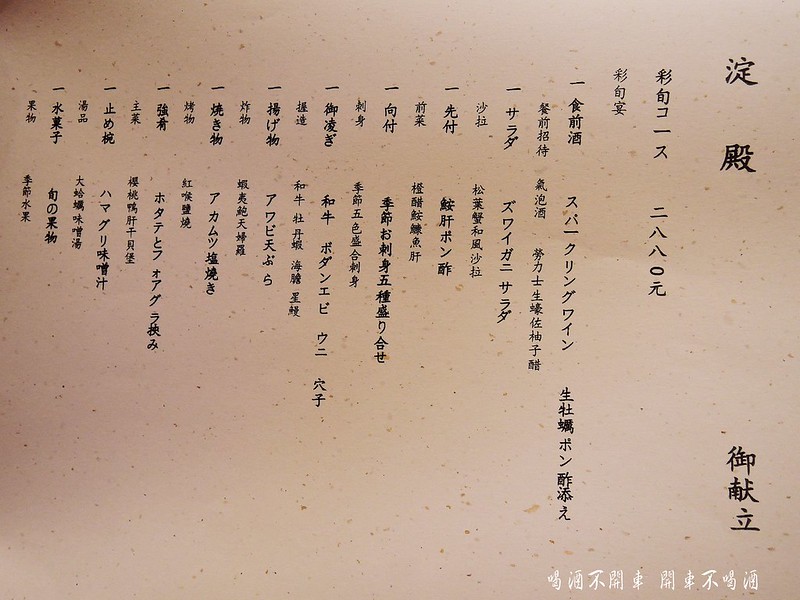 淀殿 御献立
彩旬コース 二八八〇元
彩旬宴
一 食前酒 スパークリングワイン 生牡蠣ポン酢添え
餐前招待 氣泡酒 勞力士生蠔佐柚子醋
一 サラダ ズワイガニサラダ
沙拉 松葉蟹和風沙拉
一 先付 鮟肝ポン酢
前菜 橙醋鮟鱇魚肝
一 向付 季節お刺身五種盛り合せ
刺身 季節五色盛合刺身
一 御凌ぎ 和牛 ボダンエビ ウニ 穴子
握造 和牛 牡丹蝦 海膽 星鰻
一 揚げ物 アワビ天ぷら
炸物 蝦夷鮑天婦羅
一 焼き物 アカムツ塩焼き
烤物 紅喉鹽燒
一 強肴 ホタテとフォアグラ挟み
主菜 櫻桃鴨肝干貝堡
一 止め椀 ハマグリ味噌汁
湯品 大蛤蠣味噌湯
一 水菓子 旬の果物
果物 季節水果
喝酒不開車 開車不喝酒